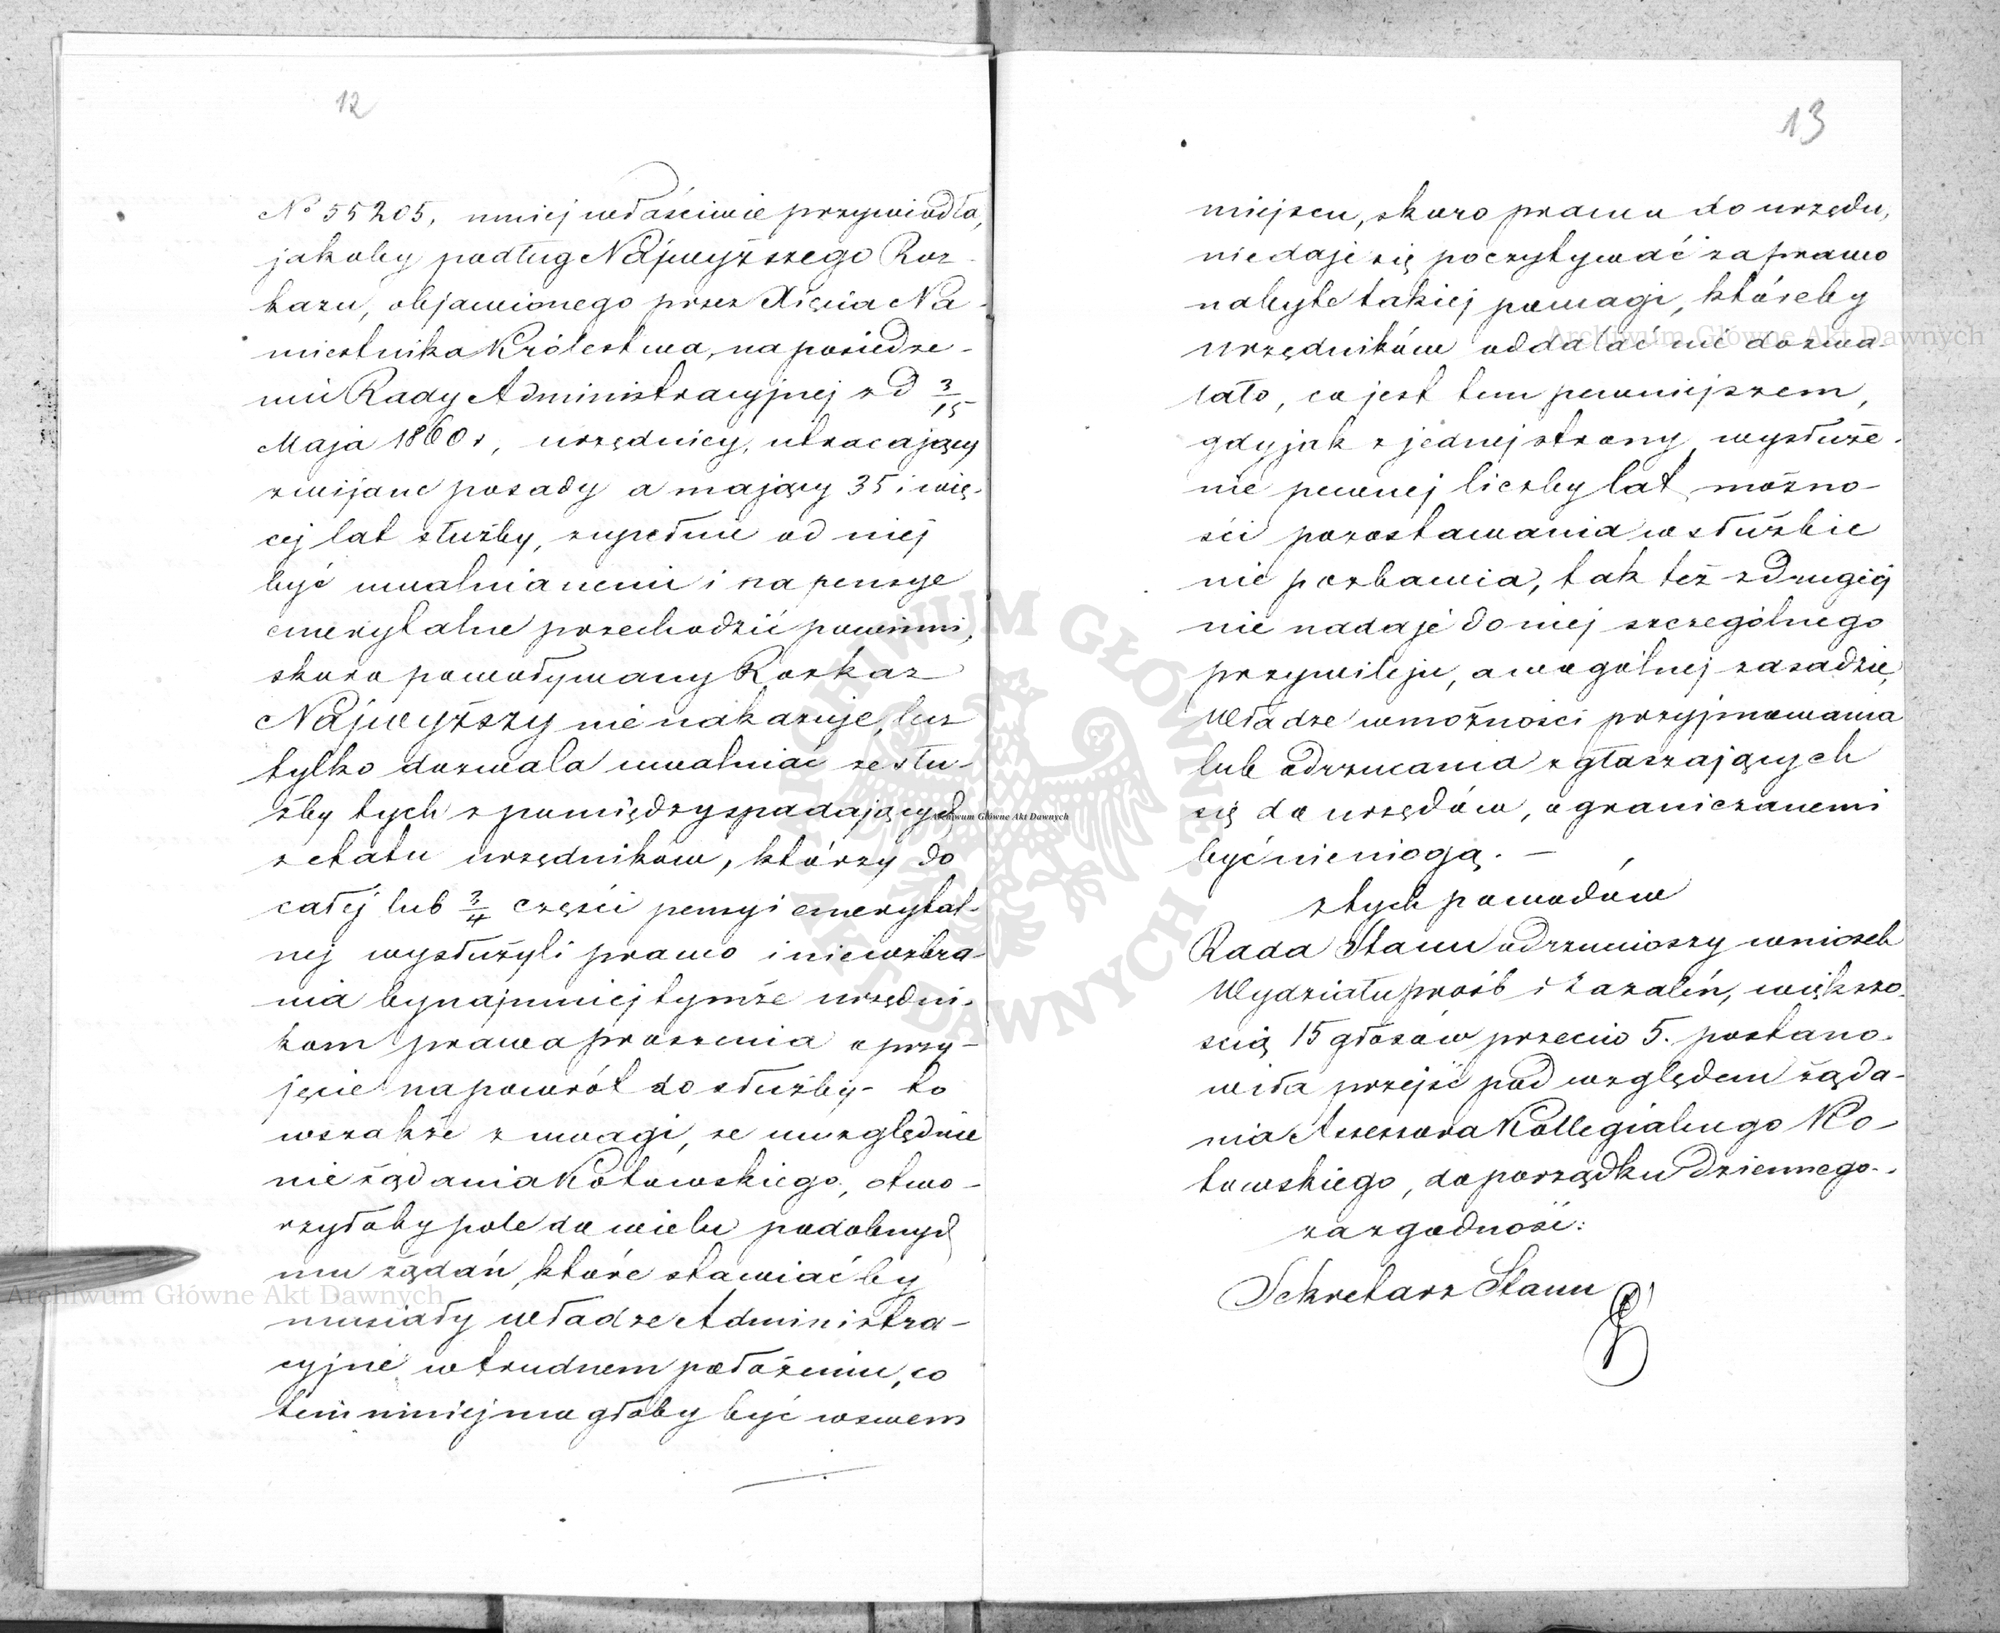 12
№ 55205, mniej właściwie przywiodła,
jakoby podług Najwyższego Roz-
kazu, objawionego przez Xięcia Na-
miestnika Królestwa, na posiedze-
niu Rady Administracyjnej z d 3/15
Maja 1860 r, urzędnicy, utracający
zwijane posady a mający 35 i wię-
cej lat służby, zupełnie od niej
być uwalnianemi i na pensye
emerytalne przechodzić powinni,
skoro powoływany Rozkaz
Najwyższy nie nakazuje, lecz
tylko dozwala uwalniać ze słu-
żby tych z pomiędzy spadających
z etatu urzędników, którzy do
całej lub 3/4 części pensyi emerytal-
nej wysłużyli prawo i nie wzbra-
nia bynajmniej tymże urzędni-
kom prawa proszenia o przy-
jęcie napowrót do służby - to
wszakże z uwagi, że uwzględnie
nie żądania Kotowskiego, otwo-
rzyłoby pole do wielu podobnych
mu żądań, które stawiać by
musiały władze Administra-
cyjne w trudnem położeniu, co
tem mniej mogłoby być w swem
13
miejscu, skoro prawo do urzędu,
nie daje się poczytywać za prawo
nabyte takiej powagi, któreby
urzędników oddalać nie dozwa-
lało, co jest tem pewniejszem,
gdy jak z jednej strony wysłuże-
nie pewnej liczby lat, możno-
ści pozostawania w służbie
nie pozbawia, tak też z drugiej
nie nadaje do niej szczególnego
przywileju, a w ogólnej zasadzie,
Władze w możności przyjmowania
lub odrzucania zgłaszających
się do urzędów, ograniczanemi
być nie mogą. —
z tych powodów
Rada Stanu odrzuciwszy wniosek
Wydziału próśb i zażaleń, większo-
ścią 15 głosów przeciw 5. postano-
wiła przejść pod względem żąda-
nia Assessora Kollegialnego Ko-
towskiego, do porządku dziennego. -
za zgodność:
Sekretarz Stanu
Archiwum Główne Akt Dawnych
Archiwum Główne Akt Dawnych
Archiwum Główne Akt Dawnych
ARCHIWUM GŁÓWNE AKT DAWNYCH